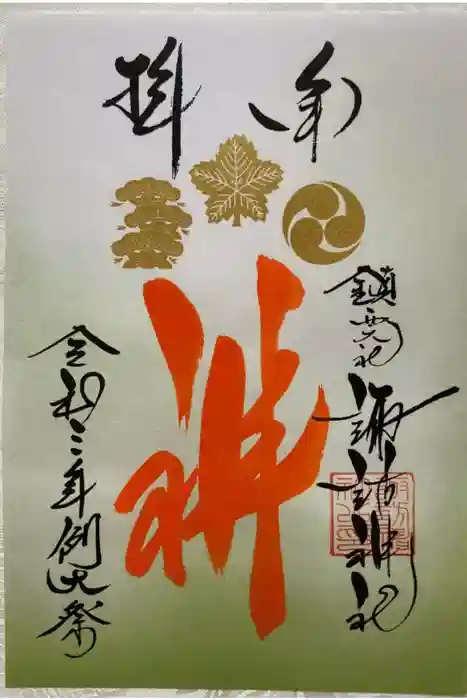 奉拝
鎮西大社
諏訪神社
令和二年例大祭